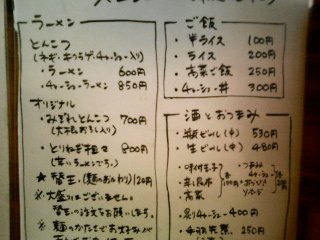 ラーメン
とんこつ
(ネギ・キクラゲ・チャーシュー入り)
・ラーメン 600円
・チャーシューラーメン 850円
オリジナル
・みぞれとんこつ 700円
(大根おろし入り)
・とりねぎ担々 800円
(辛いラーメンです。)
★ 替玉(麺のおかわり)120円
※大盛りはございません。
替玉の注文をお願いします。
※麺のかたさで お好みが
ご飯
・半ライス 100円
・ライス 200円
・高菜ご飯 250円
・チャーシュー丼 300円
酒とおつまみ
・瓶ビール(中) 530円
・生ビール(中) 480円
・味付玉子
・辛子高菜
・高菜
各100円
・つまみチャーシュー
・炙りチャーシュー 400円
250円